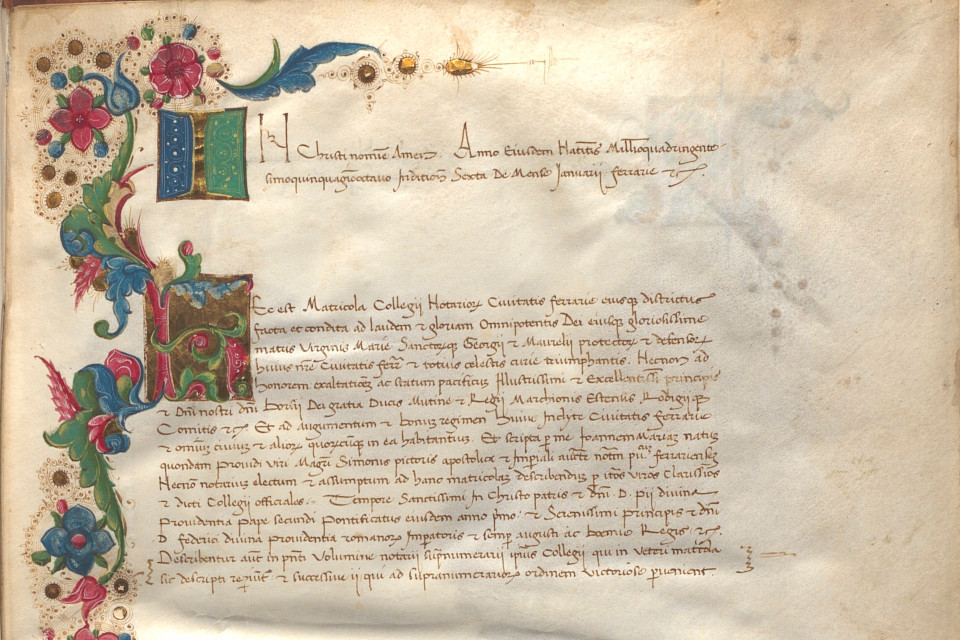 IN Christi nomine Amen. Anno Eiusdem Natiuitatis Millioquadringente
simoquinquagesimooctauo Inditione Sexta De Mense Januarij ferrarie &c.
Hec est Matricola Collegij Notarior Ciuitatis ferrarie eiusq districtus
facta et condita ad laudem & gloriam Omnipotentis Dei eiusq gloriosissime
matris Virginis Marie Sanctorq Georgij & Maurelij protector & defensor
huius nre Ciuitatis ferr & totius celestis curie triumphantis. Necnon ad
honorem exaltationem ac statum pacificum Illustrissimi & Excellentissimi principis
& Dni nostri dni Borsij Dei gratia Ducis Mutine & Regij Marchionis Estensis Rodigijq
Comitis &c. Et ad augumentum & bonum regimen huius Inclyte Ciuitatis ferrarie
& omnium ciuium & alior quorcumq in ea habitantium. Et scripta p me Joannem Mariam natum
quondam Prouidi Viri Magri Simonis pictoris apostolica & Imperiali aucte notm pu ferrariensem
Necnon notarium electum & assumptum ad hanc matricolam describendam p Viros Clarissios
& dicti Collegij officiales. Tempore Sanctissimi In Christo patris & dni. D. Pij diuina
Prouidentia Pape secundi Pontificatus eiusdem anno primo. & Serenissimi Principis & dni
D. federici diuina prouidentia romanor Imperatoris & semp augusti ac boemie Regis &c.
Describentur aut in pnti Volumine notarij supnumerarij ipius Collegij qui in Veteri matricola
sic descripti & successiue ij qui ad supranumerarior ordinem Victoriose peruenient.